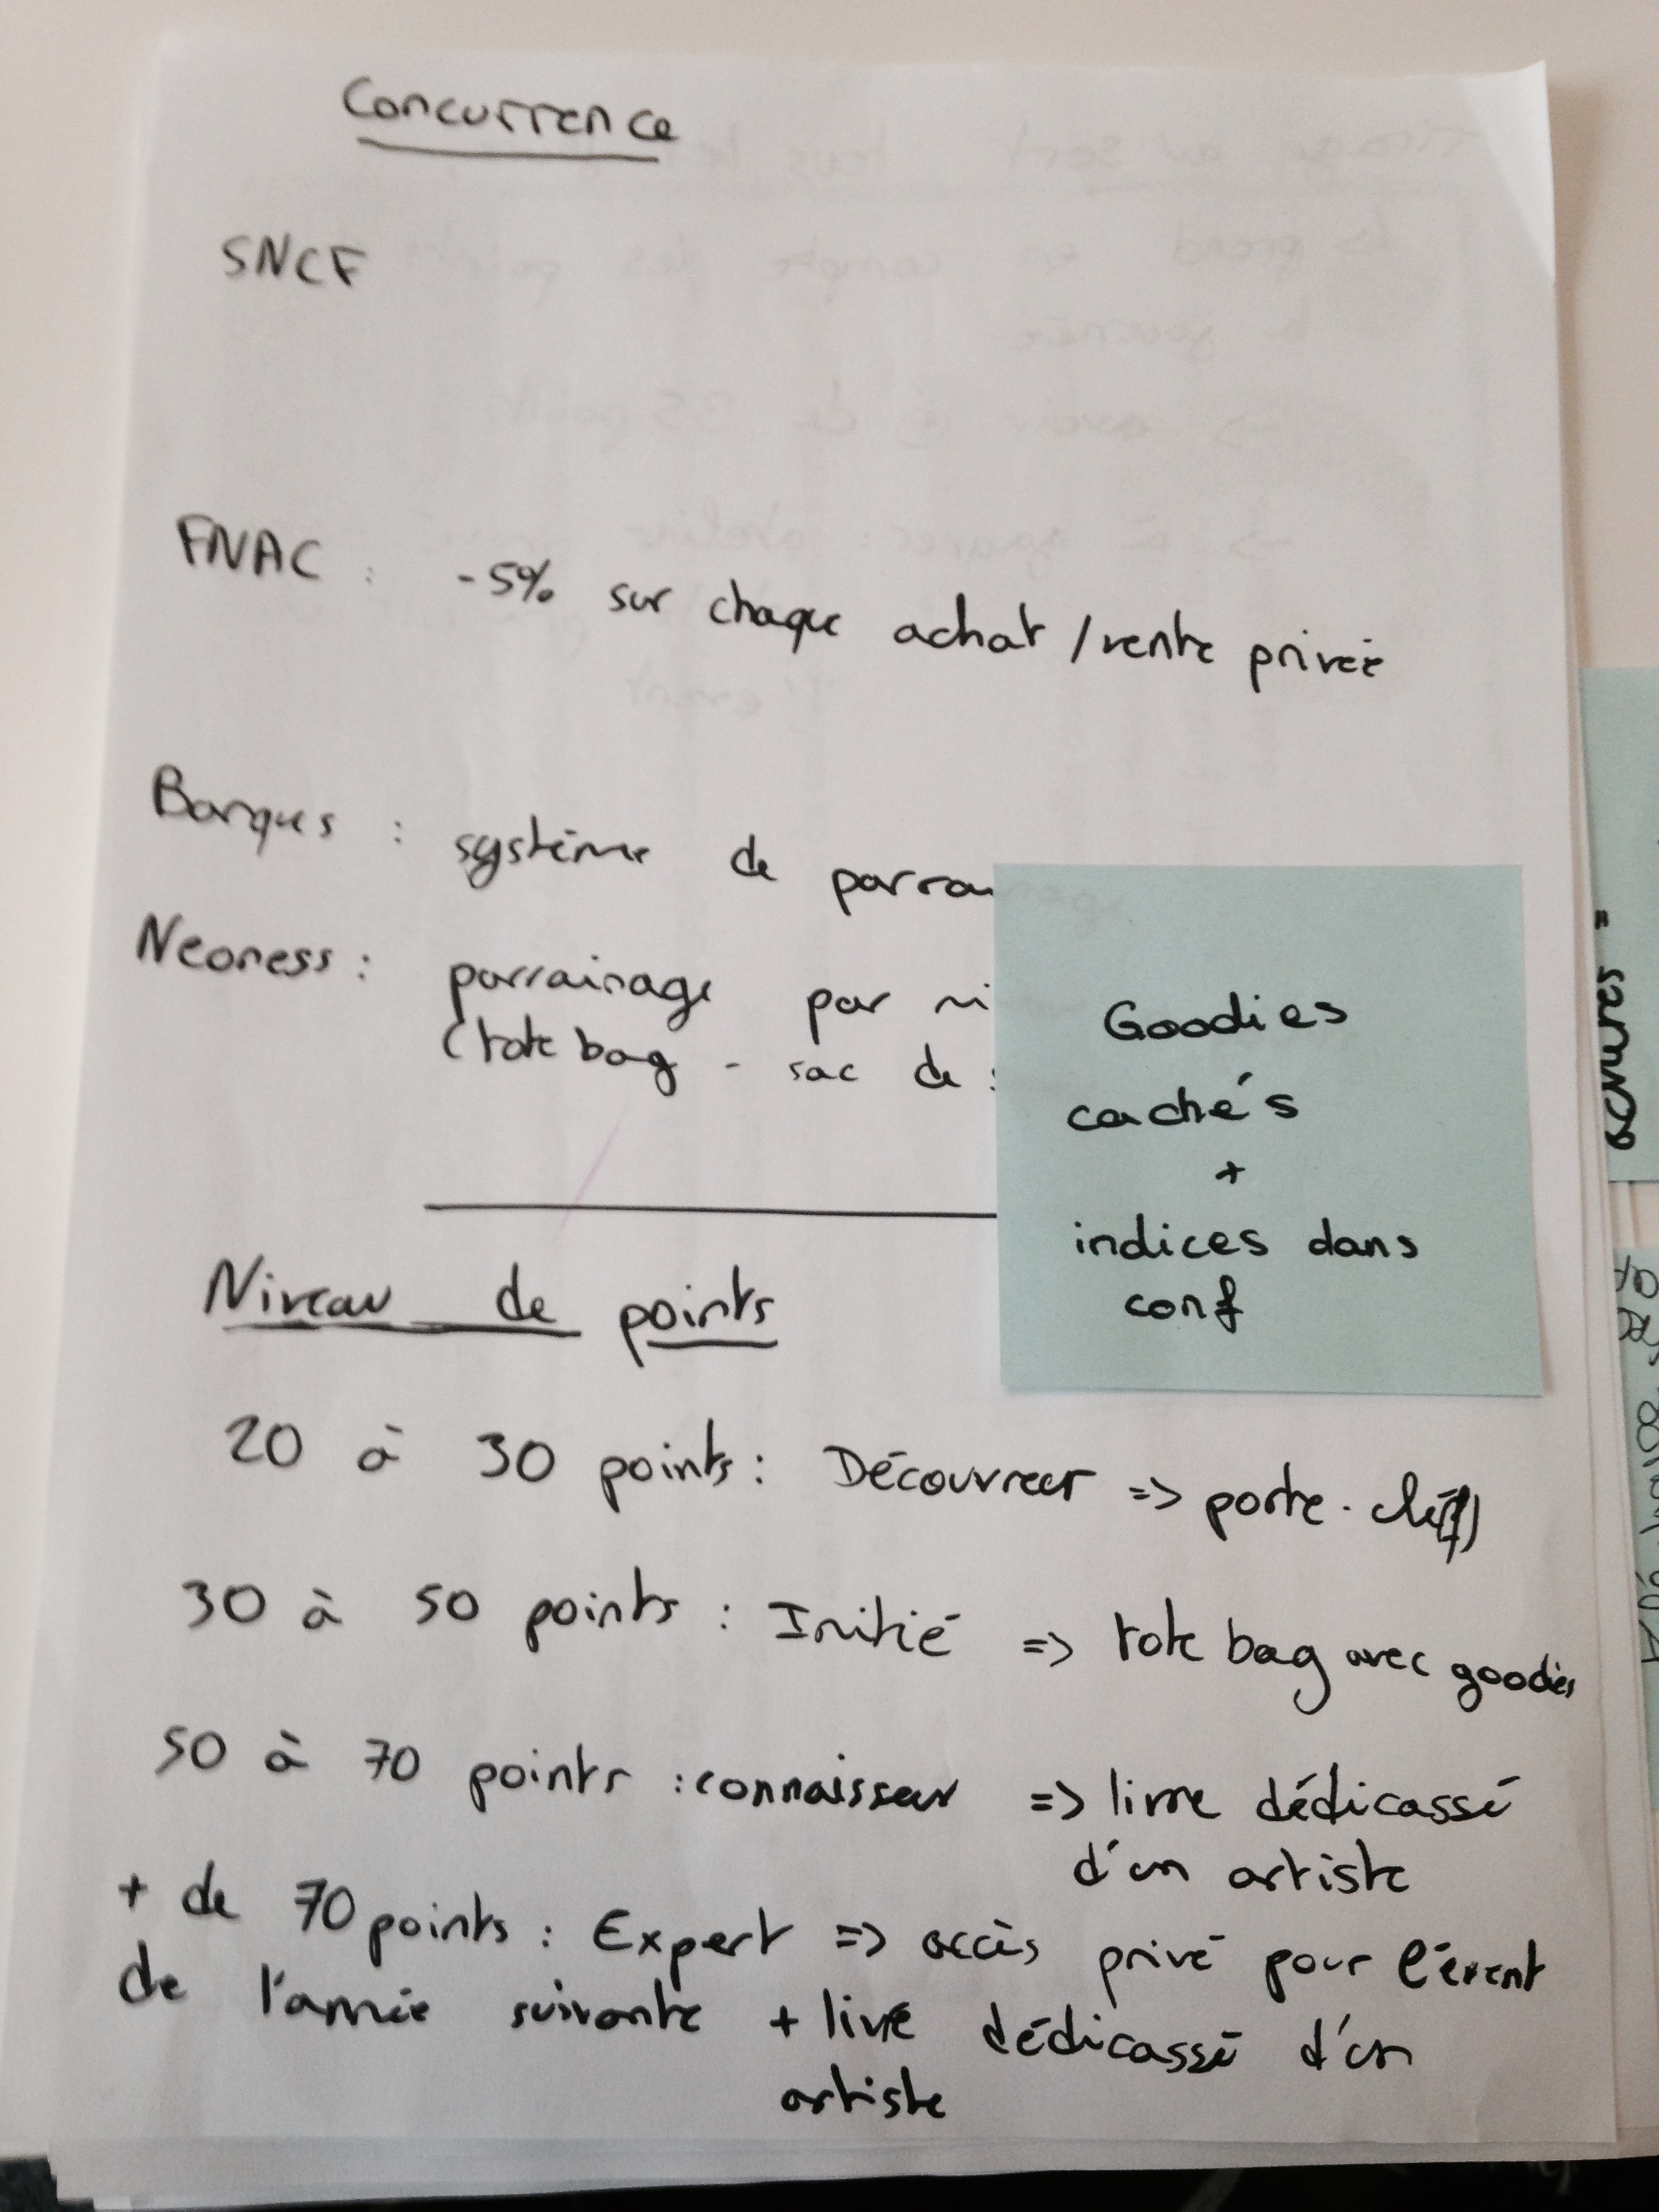 Concurrence
SNCF
FNAC : -5% sur chaque achat / vente privée
Banques : système de parrainage
Neoness : parrainage par ni
(tote bag - sac de
Goodies
cachés
+
indices dans
conf
Niveau de points
20 à 30 points : Découvreer => porte-clé
30 à 50 points : Initié => tote bag avec goodies
50 à 70 points : connaisseur => livre dédicassé
d'un artiste
+ de 70 points : Expert => accès privé pour l'évent
de l'année suivante + livre dédicassé d'un
artiste